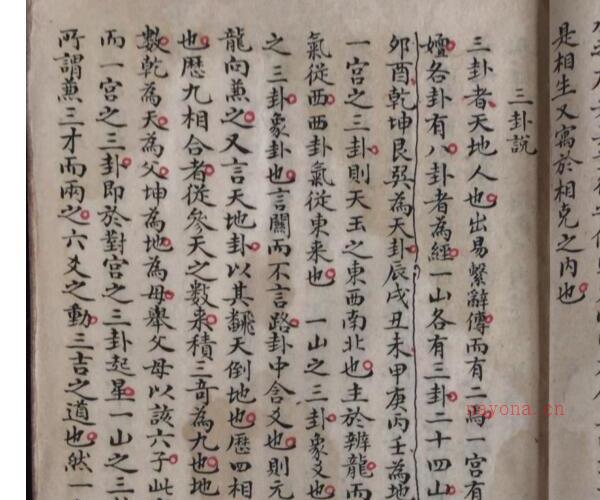 是相生又寓於相克之内也
三卦説
三卦者天地人也出易繫辭傳而有二焉一宮有
嬗各卦有八卦者為經一山各有三卦二十四山
夘酉乾坤艮巽為天卦辰戌丑未甲庚丙壬為地
一宮之三卦則天玉之東西南北也主於辨龍而
氣從西西卦氣從東来也一山之三卦象爻也
之三卦象卦也言關而不言路卦中含爻也則元
龍向蕪之又言天地卦以其飜天倒地也歴四相
也歴九相合者從參天之数来積三竒為九也地
数乾為天為父坤為地為母舉父母以該六子此
而一宮之三卦即於對宮之三卦起星一山之三
所謂蕪三才而兩之六爻之動三吉之道也然一
nayona.cn